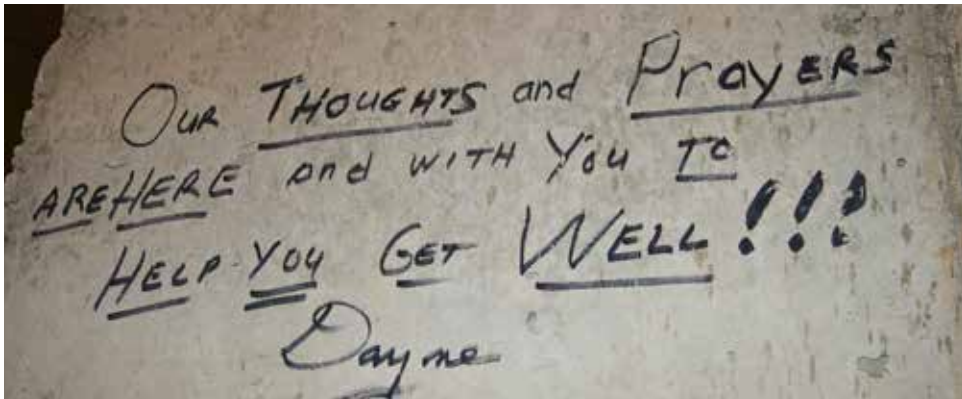 OUR THOUGHTS and PrayERS
ARE HERE and WITH YOU TO
HELP YOU GET WELL!!!
Dayne